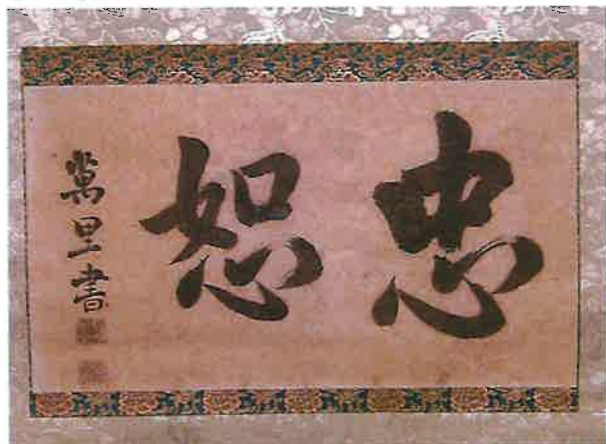 忠恕
萬里書